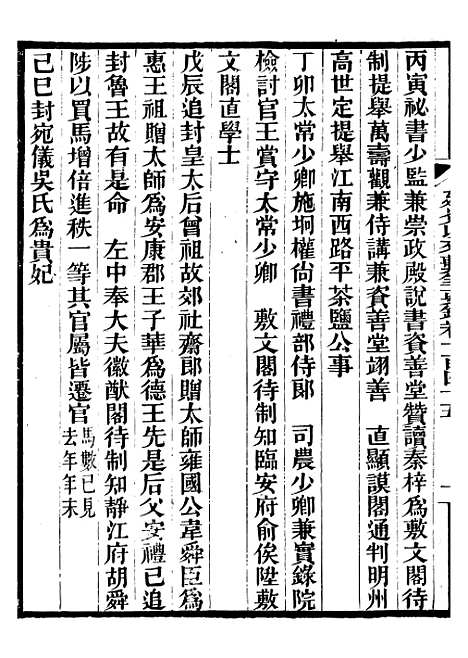 丙寅祕書少監兼崇政殿說書資善堂贊讀秦梓爲敷文閣待
制提舉萬壽觀兼侍講兼資善堂翊善　直顯謨閣通判明州
高世定提舉江南西路平茶鹽公事
丁卯太常少卿施坰權尙書禮部侍郞　司農少卿兼實錄院
檢討官王賞守太常少卿　敷文閣待制知臨安府俞俟陞敷
文閣直學士
戊辰追封皇太后曾祖故郊社齋郞贈太師雍國公韋舜臣爲
惠王祖贈太師爲安康郡王子華爲德王先是后父安禮已追
封魯王故有是命　左中奉大夫徽猷閣待制知靜江府胡舜
陟以買馬增倍進秩一等其官屬皆遷官馬數已見
去年年末
己巳封宛儀吳氏爲貴妃